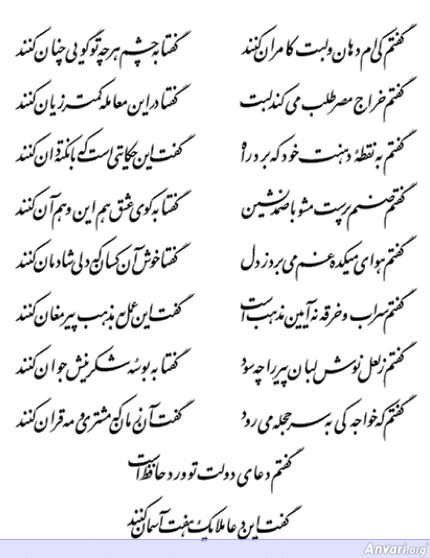 گفتم کی ام دهان و لبت کامران کنند گفتا به چشم هر چه تو گویی چنان کنند
گفتم خراج مصر طلب می کند لبت گفتا در این معامله کمتر زیان کنند
گفتم به نقطهٔ دهنت خود که برد راه گفت این حکایتی است که با نکته دان کنند
گفتم صنم پرست مشو با صمد نشین گفتا به کوی عشق هم این و هم آن کنند
گفتم هوای میکده غم می برد ز دل گفتا خوش آن کسان که دلی شادمان کنند
گفتم شراب و خرقه نه آیین مذهب است گفت این عمل به مذهب پیر مغان کنند
گفتم ز لعل نوش لبان پیر را چه سود گفتا به بوسهٔ شکرینش جوان کنند
گفتم که خواجه کی به سر حجله می رود گفت آن زمان که مشتری و مه قران کنند
گفتم دعای دولت تو ورد حافظ است
گفت این دعا ملایک هفت آسمان کنند
Anvari.org